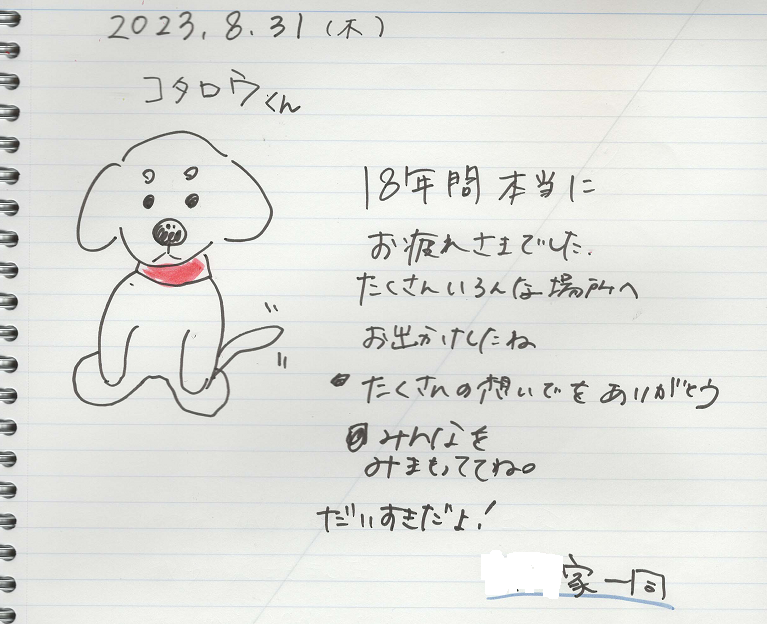 2023.8.31(木)
コタロウくん
18年間本当に
お疲れさまでした.
たくさんいろんな場所へ
お出かけしたね
たくさんの想いでをありがとう
みんなを
みまもっててね。
だいすきだよ!
家一同